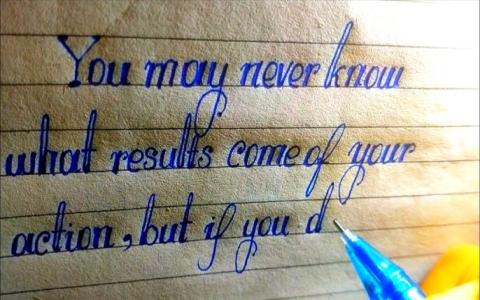 You may never know
what results come of your
action, but if you d